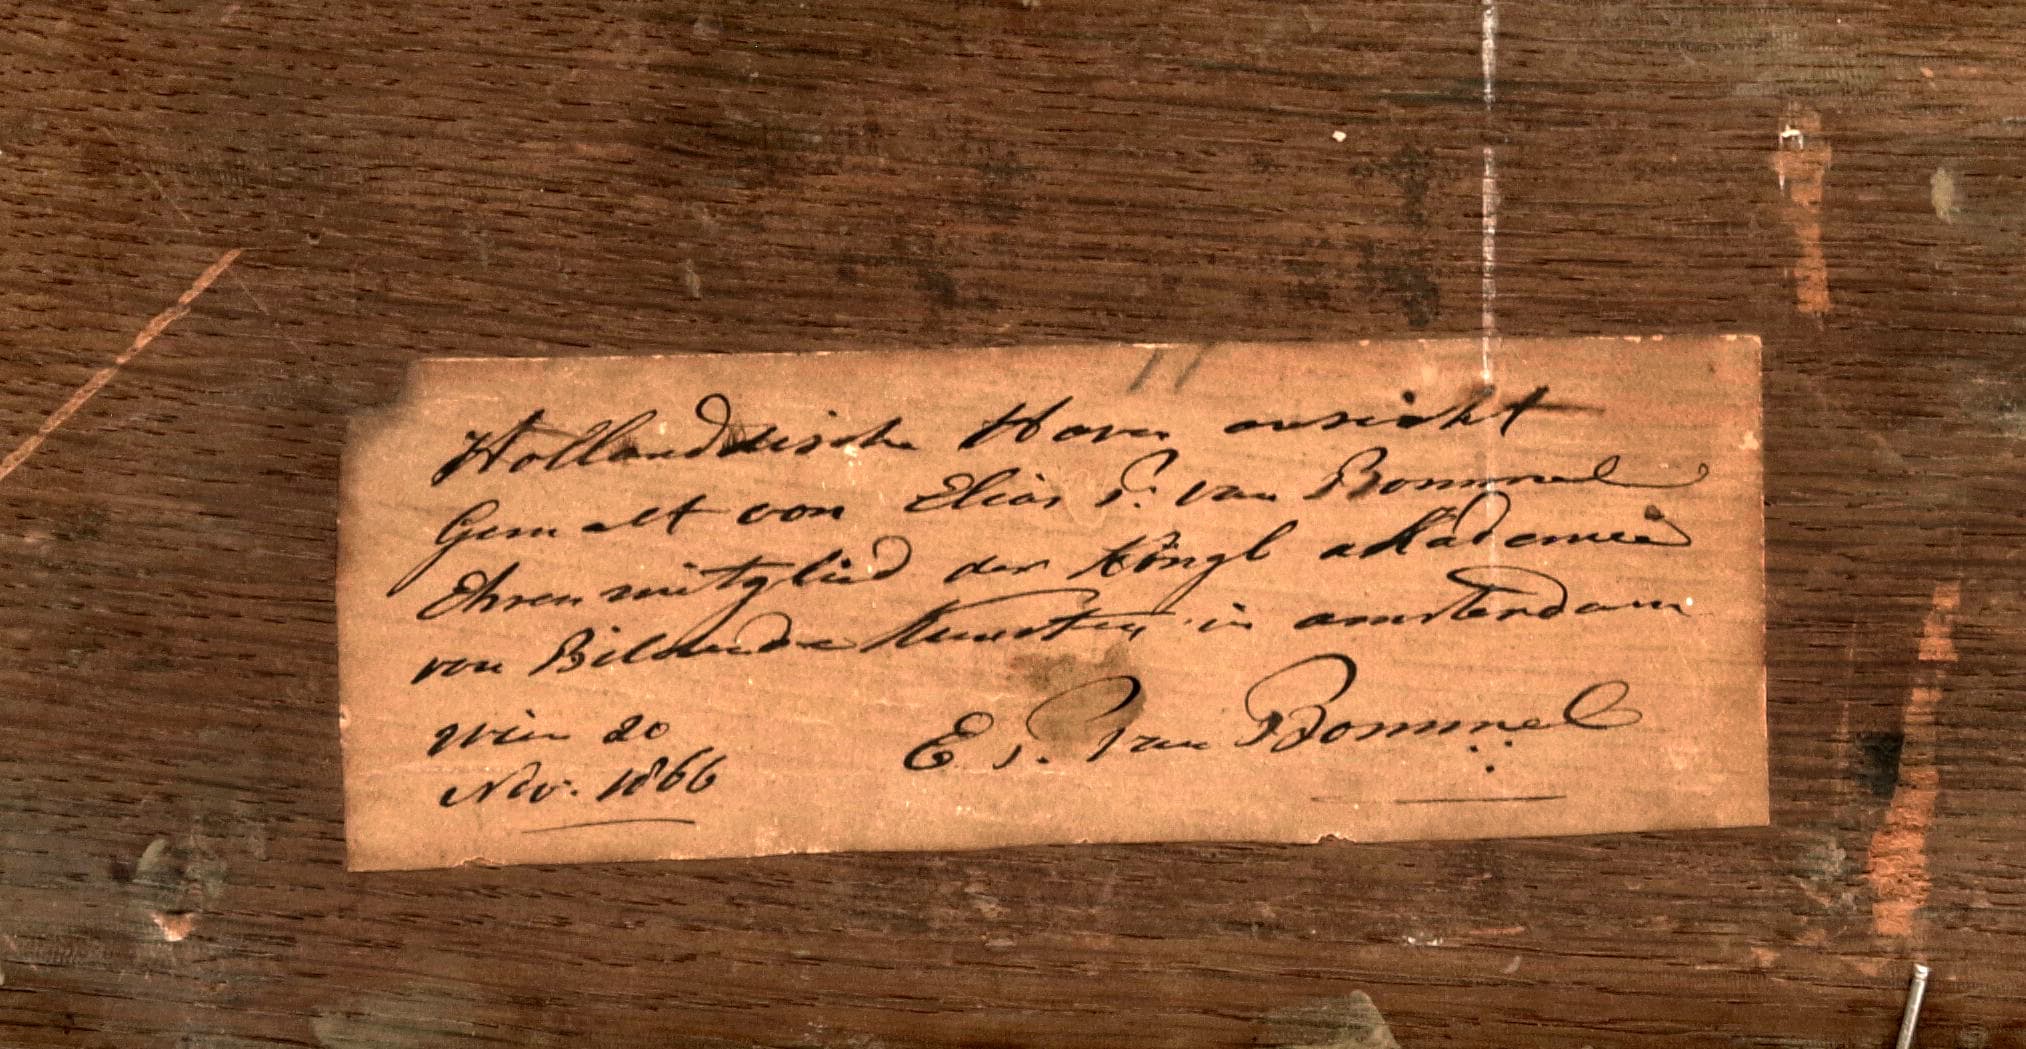 Hollanddische Haven ansicht
Gemalt von Elias P. van Bommel
Ehrenmitglied der Köngl akademie
von Bildende Kunsten in amsterdam
Wien 20
Nov. 1866
E. P. van Bommel